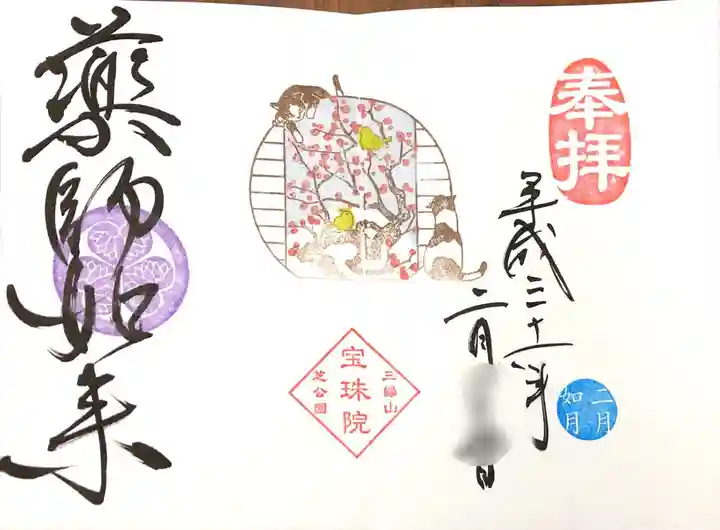 奉拝
平成三十一年
二月
日
二月
如月
三縁山
宝珠院
芝公園
薬師如来